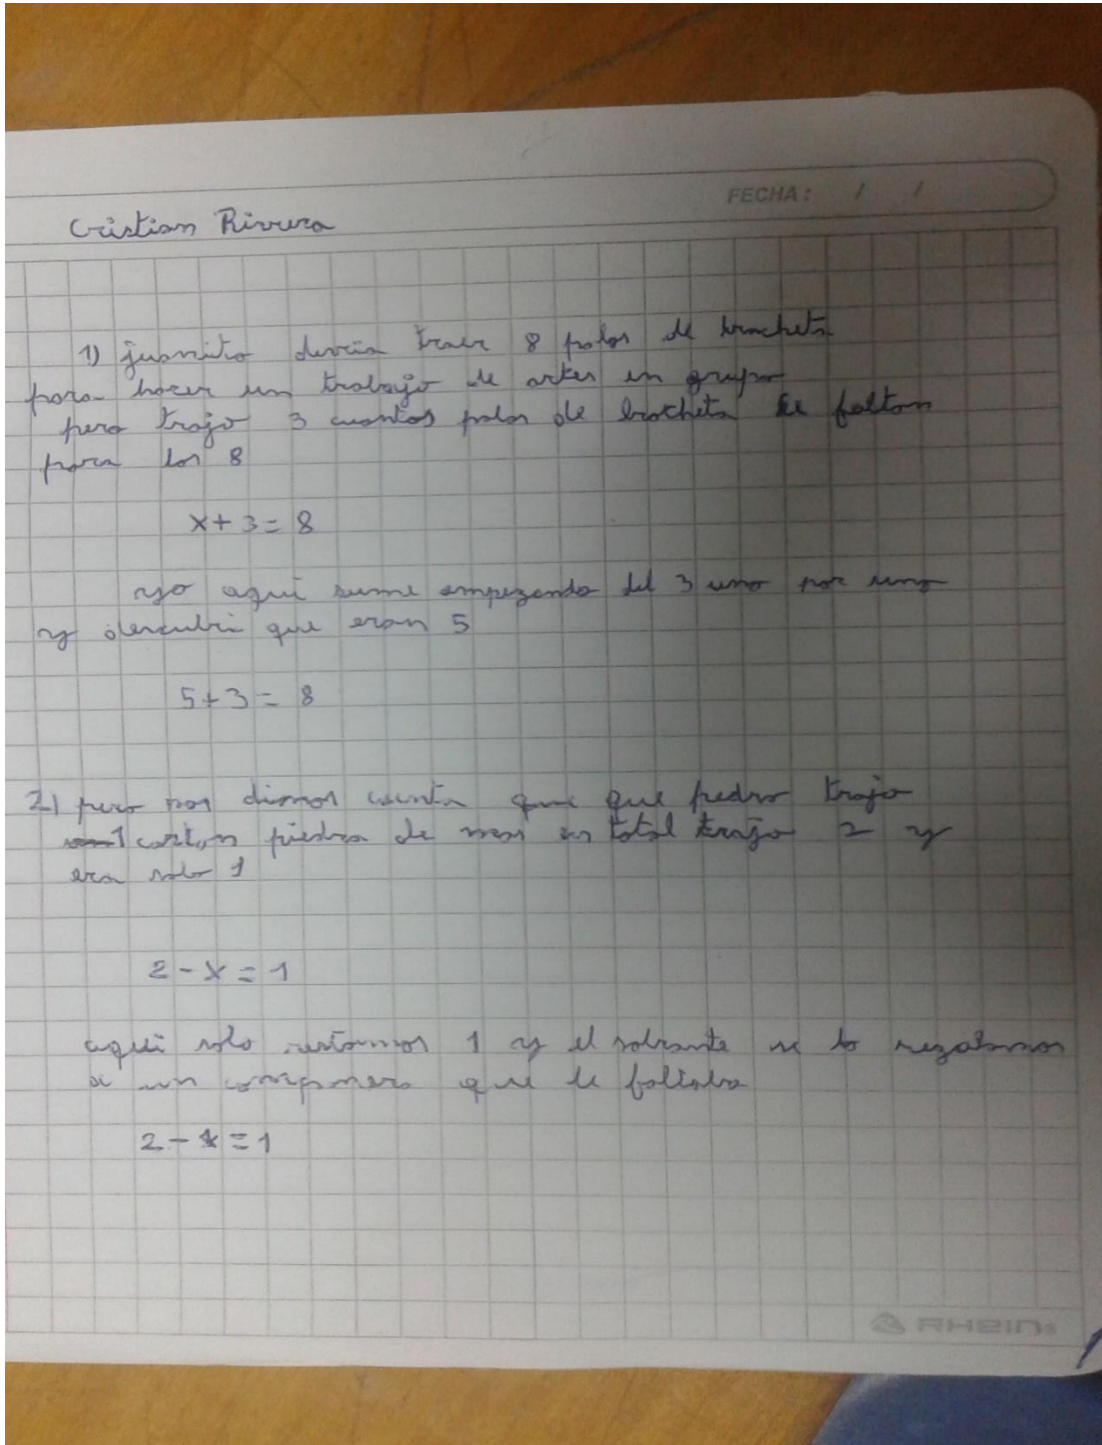 FECHA: / /
Cristian Rivera
1) juanito devria traer 8 palos de brocheta
para hacer un trabajo de artes en grupo
pero trajo 3 cuantos palos de brocheta le faltan
para los 8
x+3=8
yo aqui sume empezando del 3 uno por uno
y descubri que eran 5
5+3=8
2) pero nos dimos cuenta que que pedro trajo
1 carton piedra de mas en total trajo 2 y
era solo 1
2-x=1
aqui solo restamos 1 y el sobrante se lo regalamos
a un compañero que le faltaba
2-1=1
RHEIN